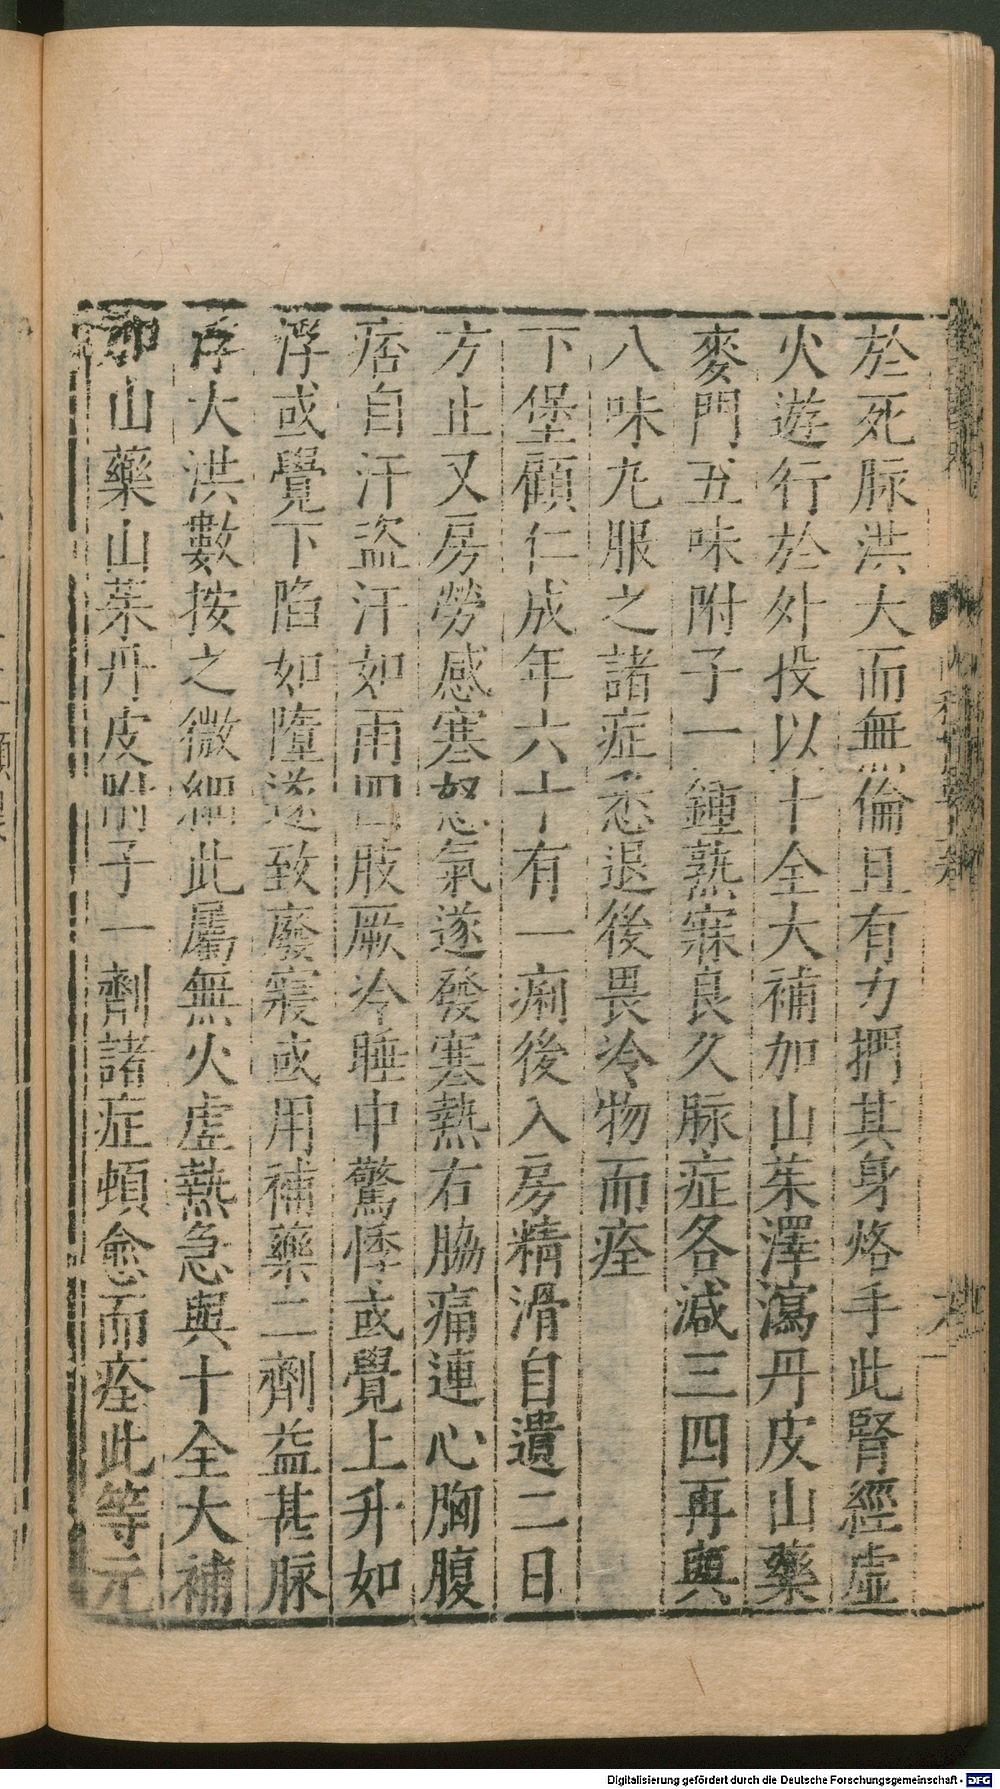 於死脉洪大而無倫且有力捫其身烙手此腎經虛
火遊行於外投以十全大補加山茱澤瀉丹皮山藥
麥門五味附子一鍾熟寐良久脉症各減三四再與
八味丸服之諸症悉退後畏冷物而痊
下堡顧仁成年六十有一痢後入房精滑自遺二日
方止又房勞感寒怒氣遂發寒熱右脇痛連心胸腹
痞自汗盜汗如雨四肢厥冷睡中驚悸或覺上升如
浮或覺下陷如墮遂致廢寢或用補藥二劑益甚脉
浮大洪數按之微細此屬無火虛熱急與十全大補
加山藥山茱丹皮附子一劑諸症頓愈而痊此等元
Digitalisierung gefördert durch die Deutsche Forschungsgemeinschaft - DFG